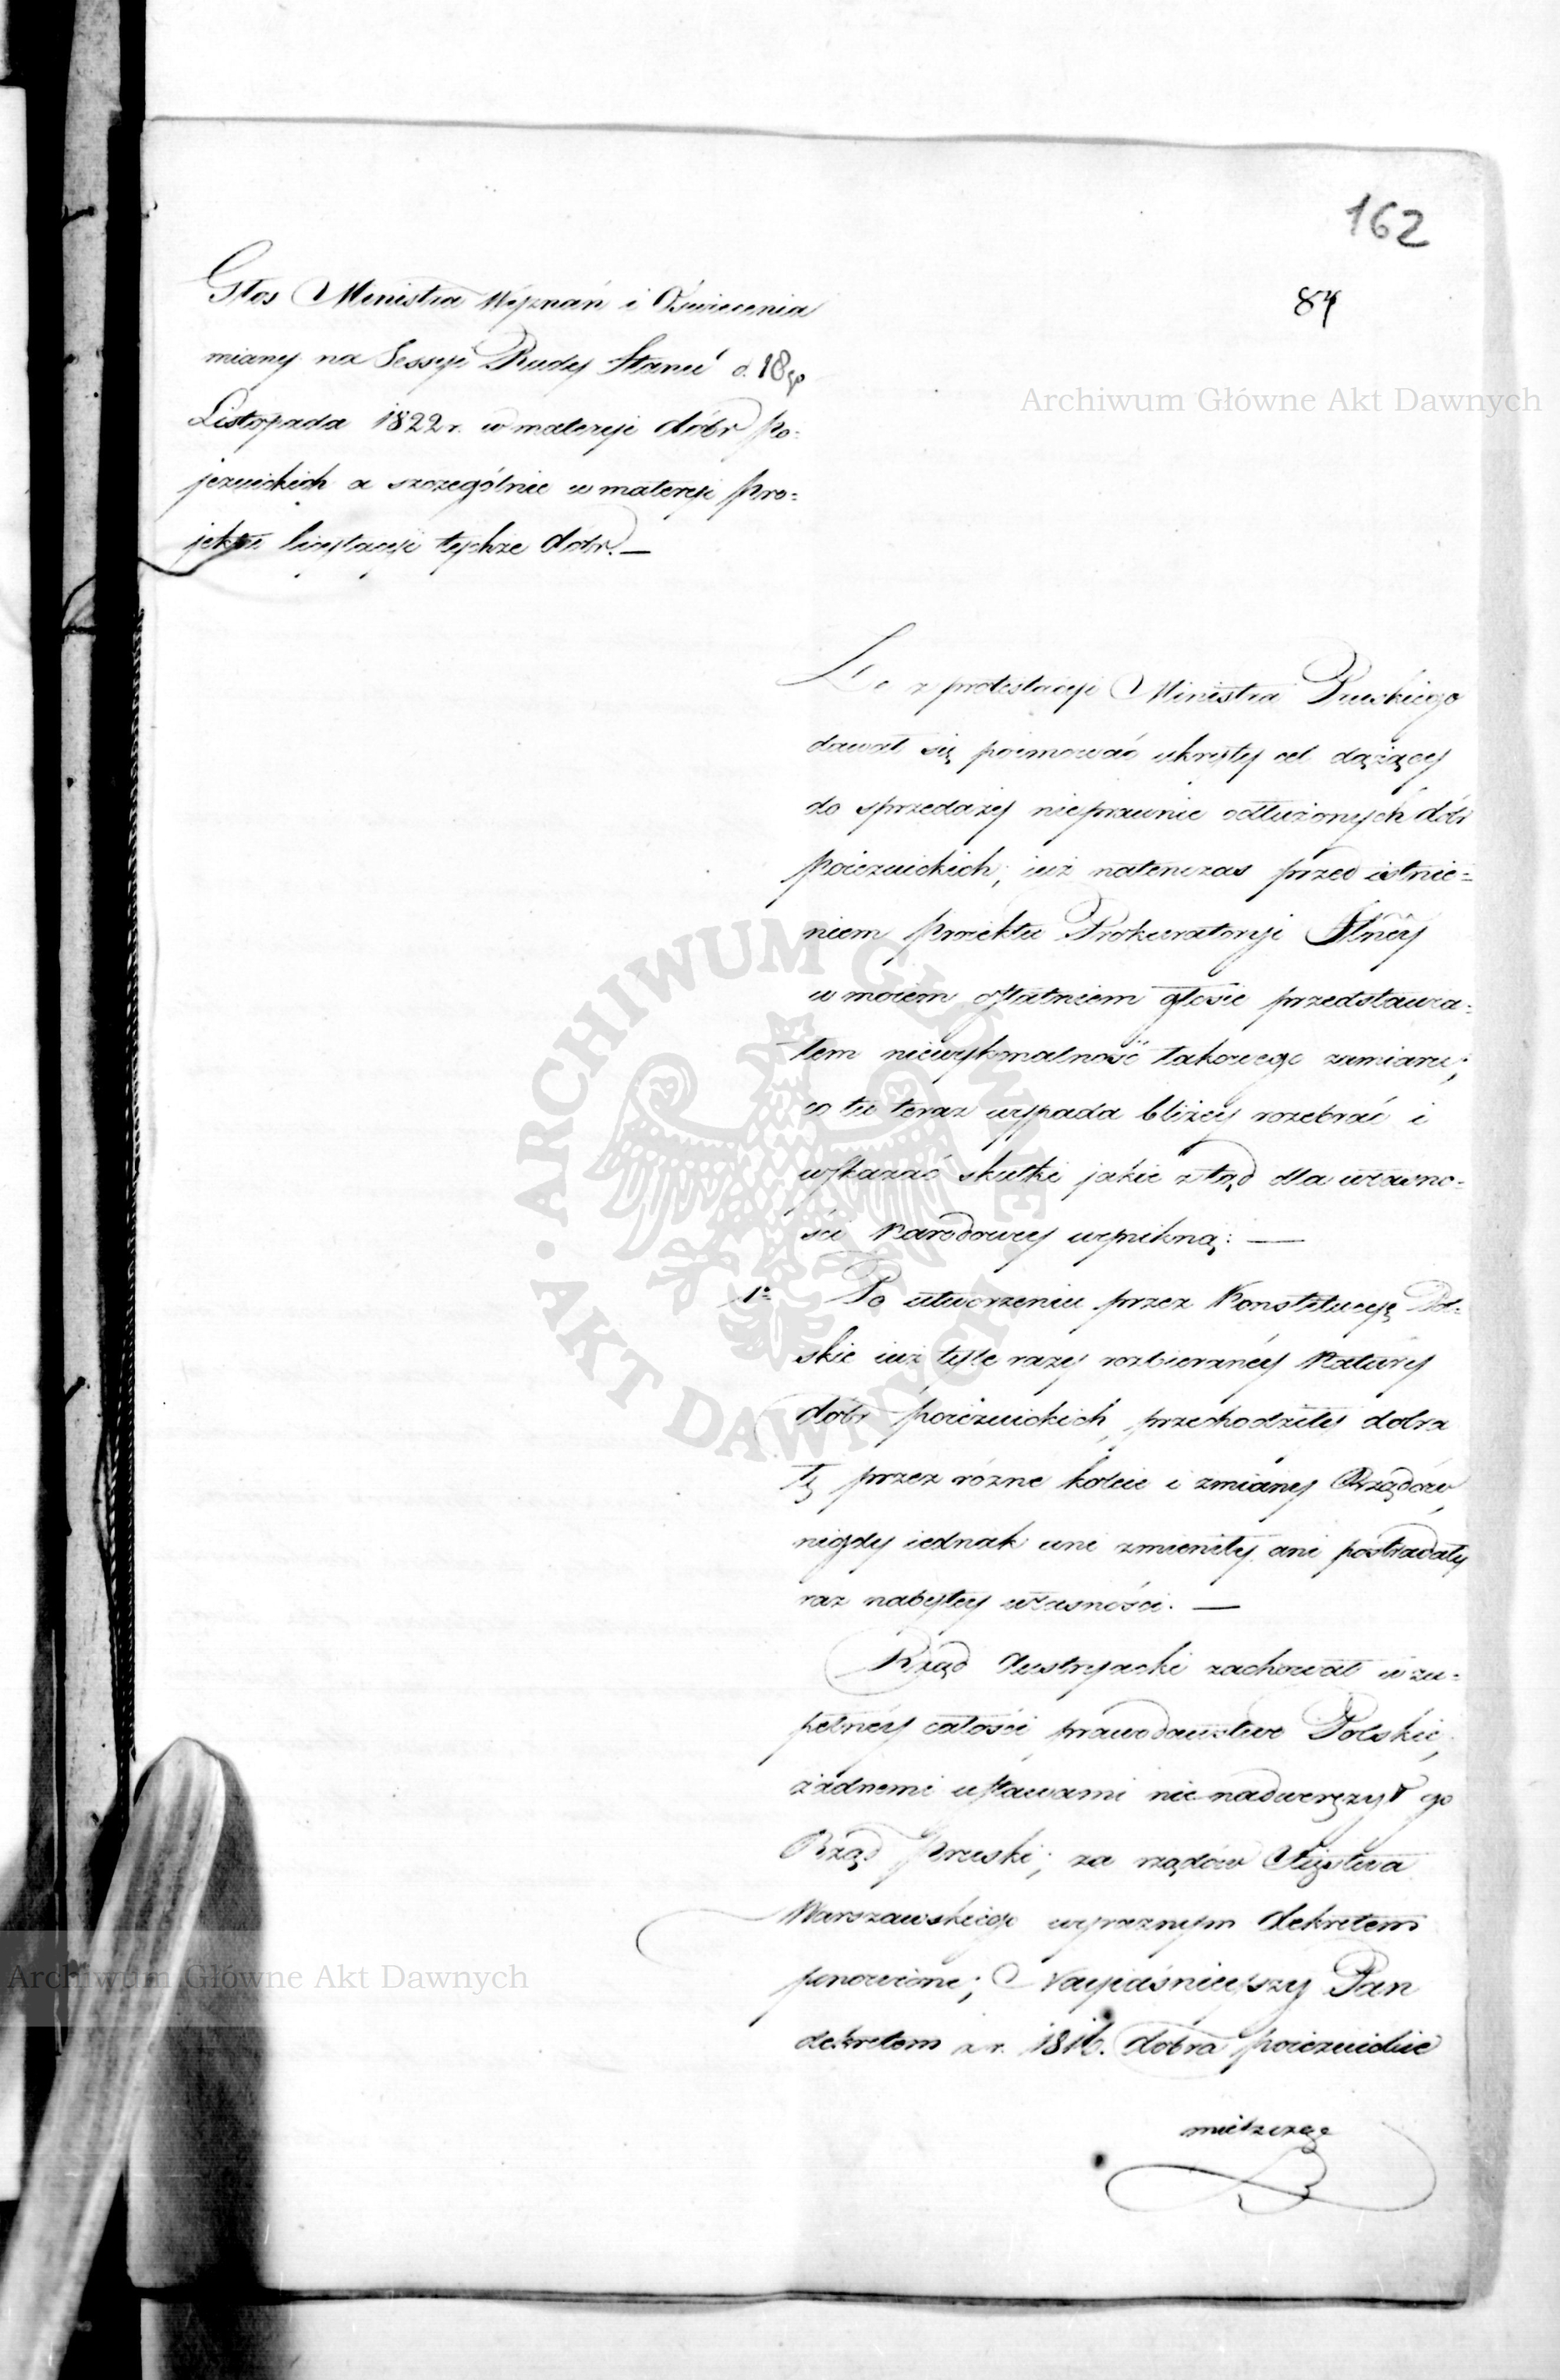 162
84
Głos Ministra Wyznań i Oświecenia
miany na Sessyi Rady Stanu d. 18go
Listopada 1822 r. w materyi dóbr po=
jezuickich a szczególnie w materyi pro=
jektu licytacyi tychże dóbr. —
Archiwum Główne Akt Dawnych
Że z protestacyi Ministra Pruskiego
dawał się poimować ukryty cel dążący
do sprzedaży nieprawnie odłużonych dóbr
poiezuickich; iuż natenczas przed istnie=
niem proiektu Prokuratoryi
w moiem ostatniem głosie przedstawia=
łem niewykonalność takowego zamiaru;
co tu teraz wypada bliżey rozebrać i
wskazać skutki jakie ztąd dla własno=
ści Narodowey wynikną: —
1o Po utworzeniu przez Konstytucyę Pol=
skie iuż tyle razy rozbieraney Natury
dóbr poiezuickich, przechodziły dobra
tę przez różne koleie i zmiany Rządów,
nigdy iednak ani zmieniły ani postradały
raz nabytey własności. —
Rząd Austryacki zachował w zu=
pełney całości prawodawstwo Polskie,
żadnemi ustawami nie nadwerężył go
Rząd Pruski; za rządów Xięstwa
Warszawskiego wyraznym dekretem
ponowione; Nayiaśnieyszy Pan
dekretem z r. 1816. dobra poiezuickie
ARCHIWUM GŁÓWNE • AKT DAWNYCH •
Archiwum Główne Akt Dawnych